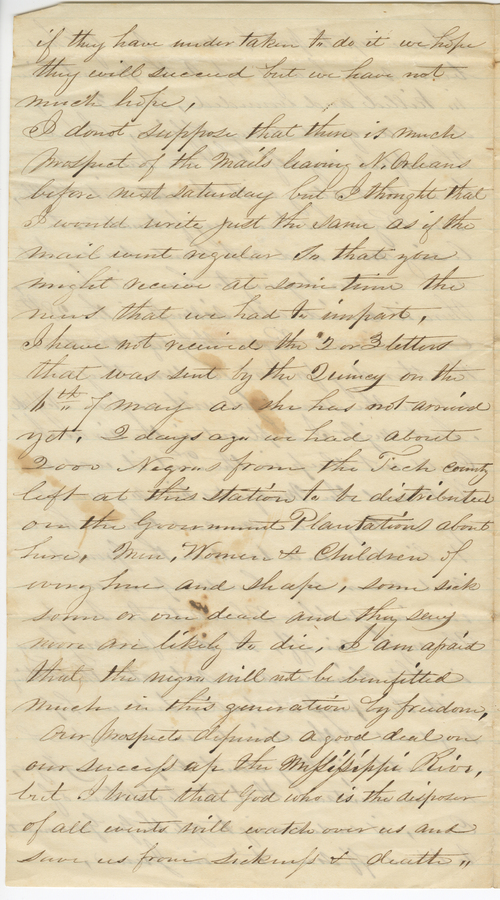 if they have undertaken to do it we hope
they will succeed but we have not
much hope,
I donot suppose that there is much
prospect of the Mails leaving N. Orleans
before next saturday but I thought that
I would write just the same as if the
mail went regular So that you
might receive at some time the
news that we had to impart,
I have not received the 2 or 3 letters
that was sent by the Quincy on the
6th of May as she has not arrived
yet, 2 days ago we had about
2000 Negroes from the Tech county
left at this station to be distributed
on the Government Plantations about
here, Men, Women & Children of
every hue and shape, some sick
some or one dead and they say
more are likely to die, I am afraid
that the negro will not be benefitted
much in this generation by freedom,
Our prospects depend a good deal on
our success up the Mississippi River,
but I trust that God who is the disposer
of all events will watch over us and
save us from sickness & death "